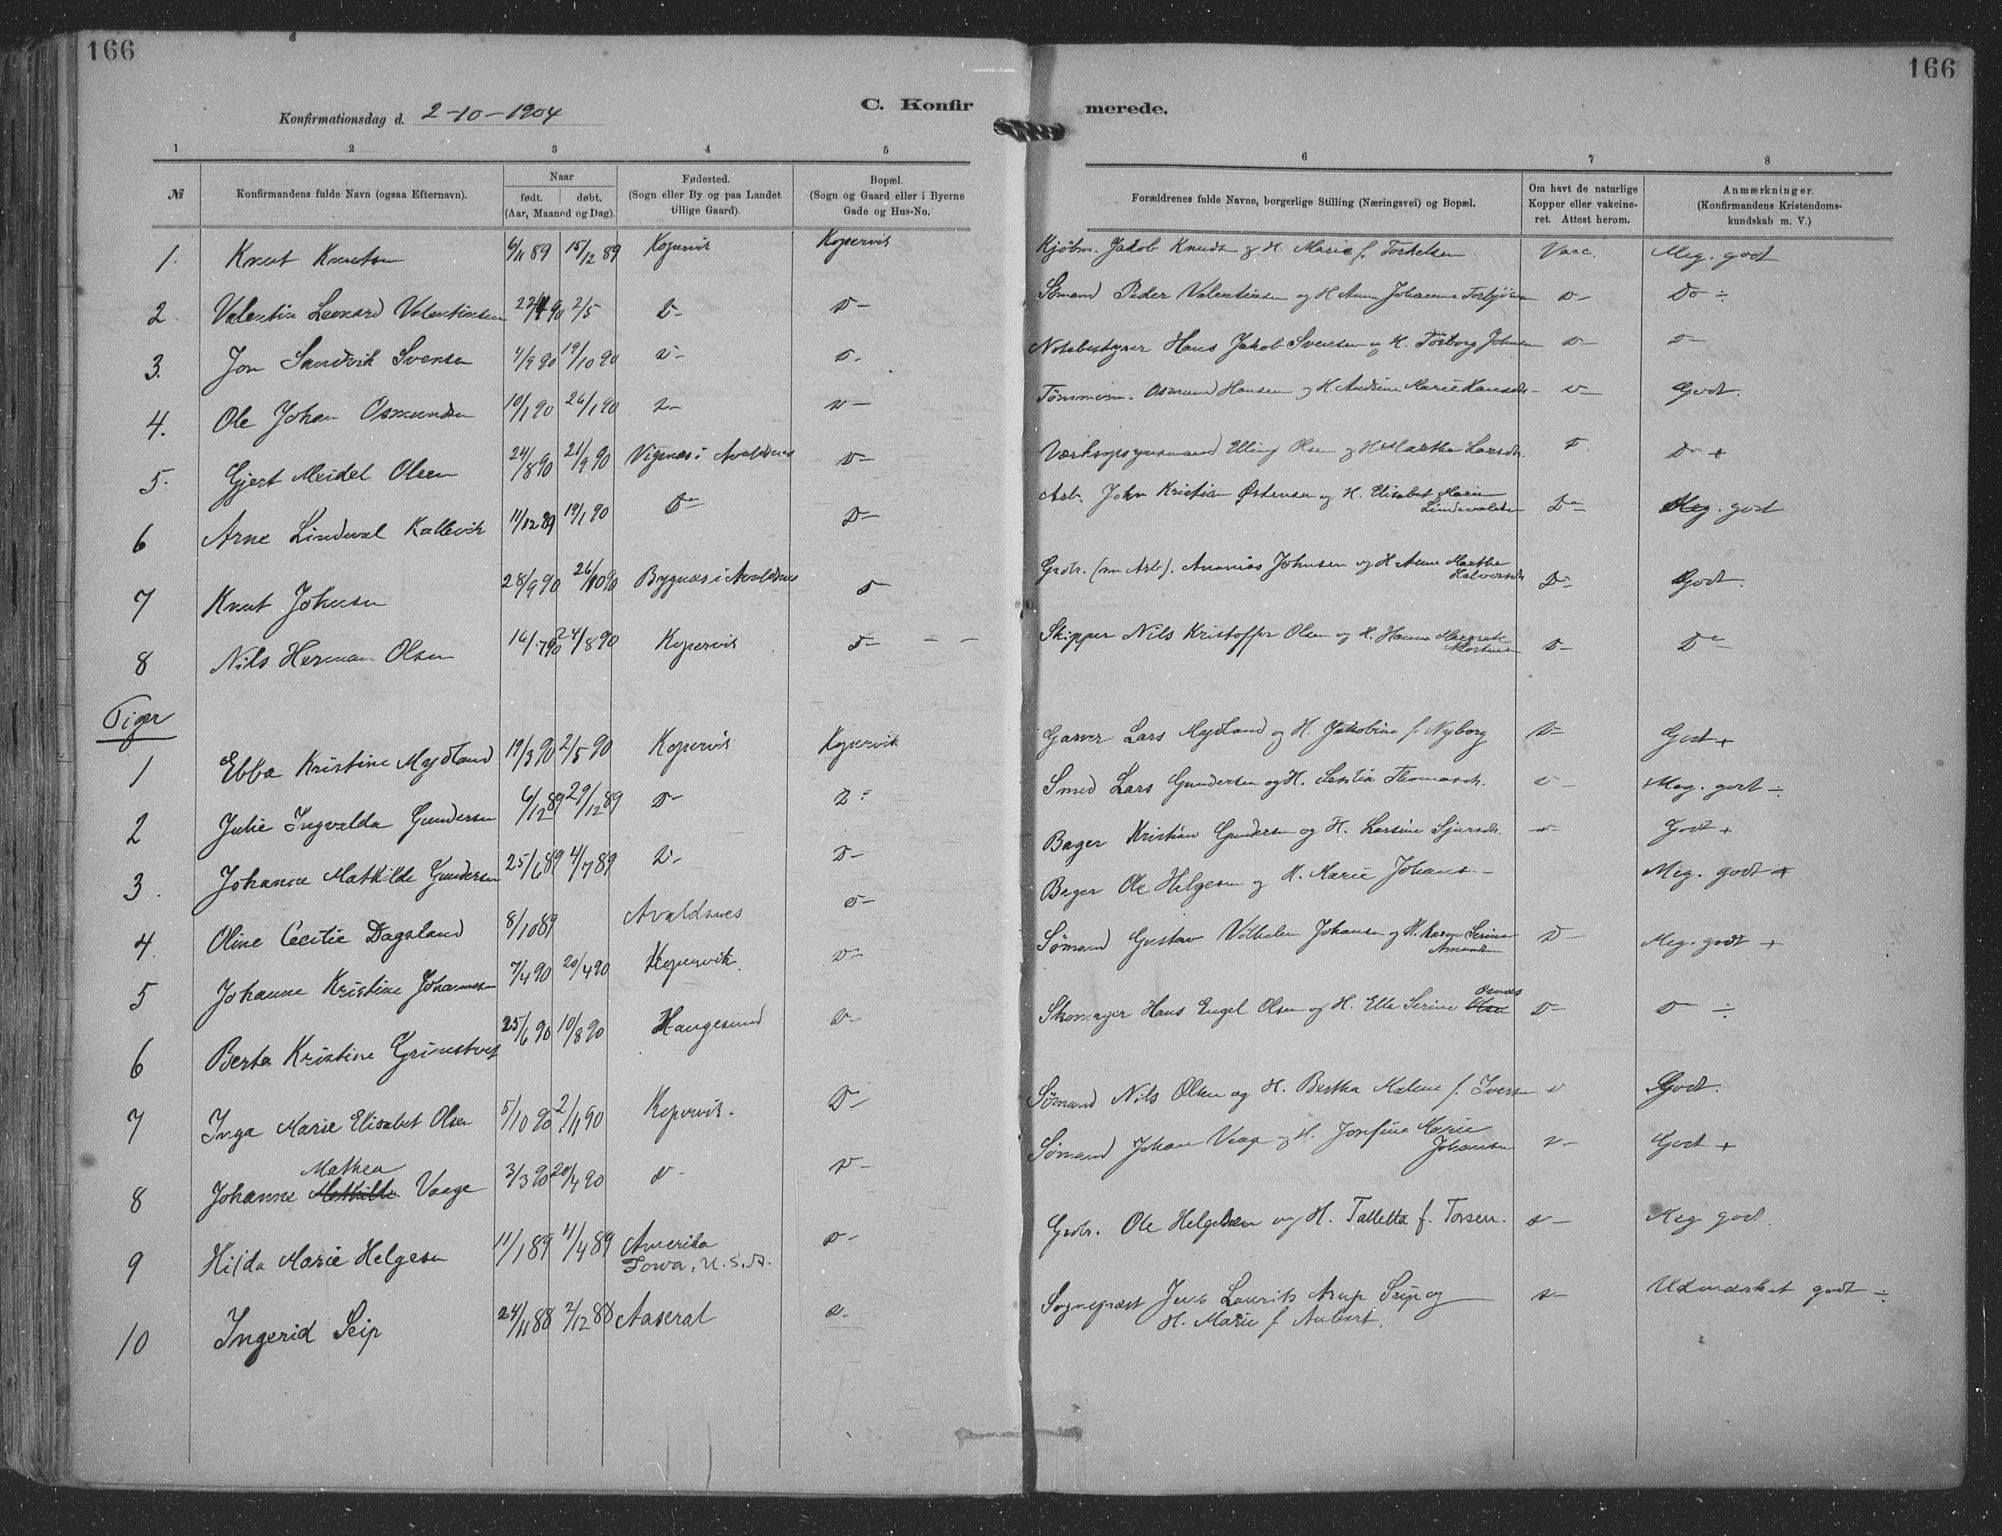 166
166
C. Konfir
merede.
Konfirmationsdag d. 2-10-1904
1 2 3 4 5 6 7 8
№
Konfirmandens fulde Navn (ogsaa Efternavn).
Naar
født. døbt.
(Aar, Maaned og Dag).
Fødested.
(Sogn eller By og paa Landet
tillige Gaard).
Bopæl.
(Sogn og Gaard eller i Byerne
Gade og Hus-No.
Forældrenes fulde Navne, borgerlige Stilling (Næringsvei) og Bopæl.
Om havt de naturlige
Kopper eller vakcine-
ret. Attest herom.
Anmærkninger.
(Konfirmandens Kristendoms-
kundskab m. V.)
1. Knut Knutsen 6/11 89 15/12 89 Kopervik Kopervik Kjøbm. Jakob Knudsen og H. Marie f. Torkelsen. Vacc. Meg. godt
2. Valentin Leonard Valentinsen 22/4 90 2/5 D- D- Sømand Peder Valentinsen og H. Anna Johanna D- Do ÷
3. Jon Sandvik Svensen 4/9 90 19/10 90 D- D- Notebestyrer Hans Jakob Svensen og H. Torborg Johnsen D- D-
4. Ole Johan Osmundsen 10/1 90 26/1 90 D- D- Tømmerm. Osmund Hansen og H Andrine Marie Hansdr- D- Godt.
5. Gjert Meidel Olsen 24/8 90 21/9 90 Vignæs i Avaldsnes D- Elling Olsen og H Martha Larsdr. D. Do +
6 Arne Lindeval Kallevik 11/12 89 19/1 90 Do D- Arb. John Kristian Østensen og H. Elisabet Marie
Lindevalsen Do Meg. godt
7 Knut Johnsen 28/9 90 26/10 90 Bygnæs i Avaldsnes D- Grdr. (nu Arb). Ananias Johnsen og H Anne Martha
Halvorsdr. Do Godt.
8 Nils Herman Olsen 16/7 90 24/8 90 Kopervik D- Skipper Nils Kristoffer Olsen og H. Hanna Margrete
D- Do
Piger
1 Ebba Kristine Mydland 19/3 90 2/5 90 Kopervik Kopervik Garver Lars Mydland og H. Jakobine f. Nyborg D- Godt +
2 Julie Ingvalda Gundersen 6/12 89 29/12 89 D- D- Smed Lars Gundersen og H. Thomasdr. D- Meg. godt ÷
3. Johanne Mathilde Gundersen 25/6 89 4/7 89 D- D- Bager Kristian Gundersen og H. Larsine Sjursdr. D- Godt +
4. Oline Cecilie Dagsland 8/10 89 Avaldsnes D- Bager Ole Helgesen og H. Marie Johans.- Meg. godt +
5 Johanne Kristine Johannesen 7/4 90 20/4 90 Kopervik. D- Sømand Gustav Vilhelm Johansen og H. Karen Serine
Amundsen D- Meg. godt +
6 Berta Kristine Grimstvet 25/6 90 10/8 90 Haugesund D- Skomager Hans Engel Olsen og H. Ella Serine Osnæs
Olsen D- D ÷
7 Inga Marie Elisabet Olsen 5/10 90 2/11 90 Kopervik. D- Sømand Nils Olsen og H. Bertha Malene f. Iversen D Godt.
8 Johanne Mathea
Mathilde Vaage 3/3 90 20/4 90 D- D- Sømand Johan Vaage og H. Josefine Marie
Johansen D- Godt +
9 Hilda Marie Helgesen 11/1 89 11/4 89 Amerika
Iowa, U.S.A. D- Grdr. Ole Helgesen og H. Talletta f. Torsen. D- Meg. godt.
10 Ingerid Seip 24/11 88 2/12 88 Aaseral D- Sogneprest Jens Laurits Arup Seip og
H. Marie f Aubert. D- Udmærket godt ÷